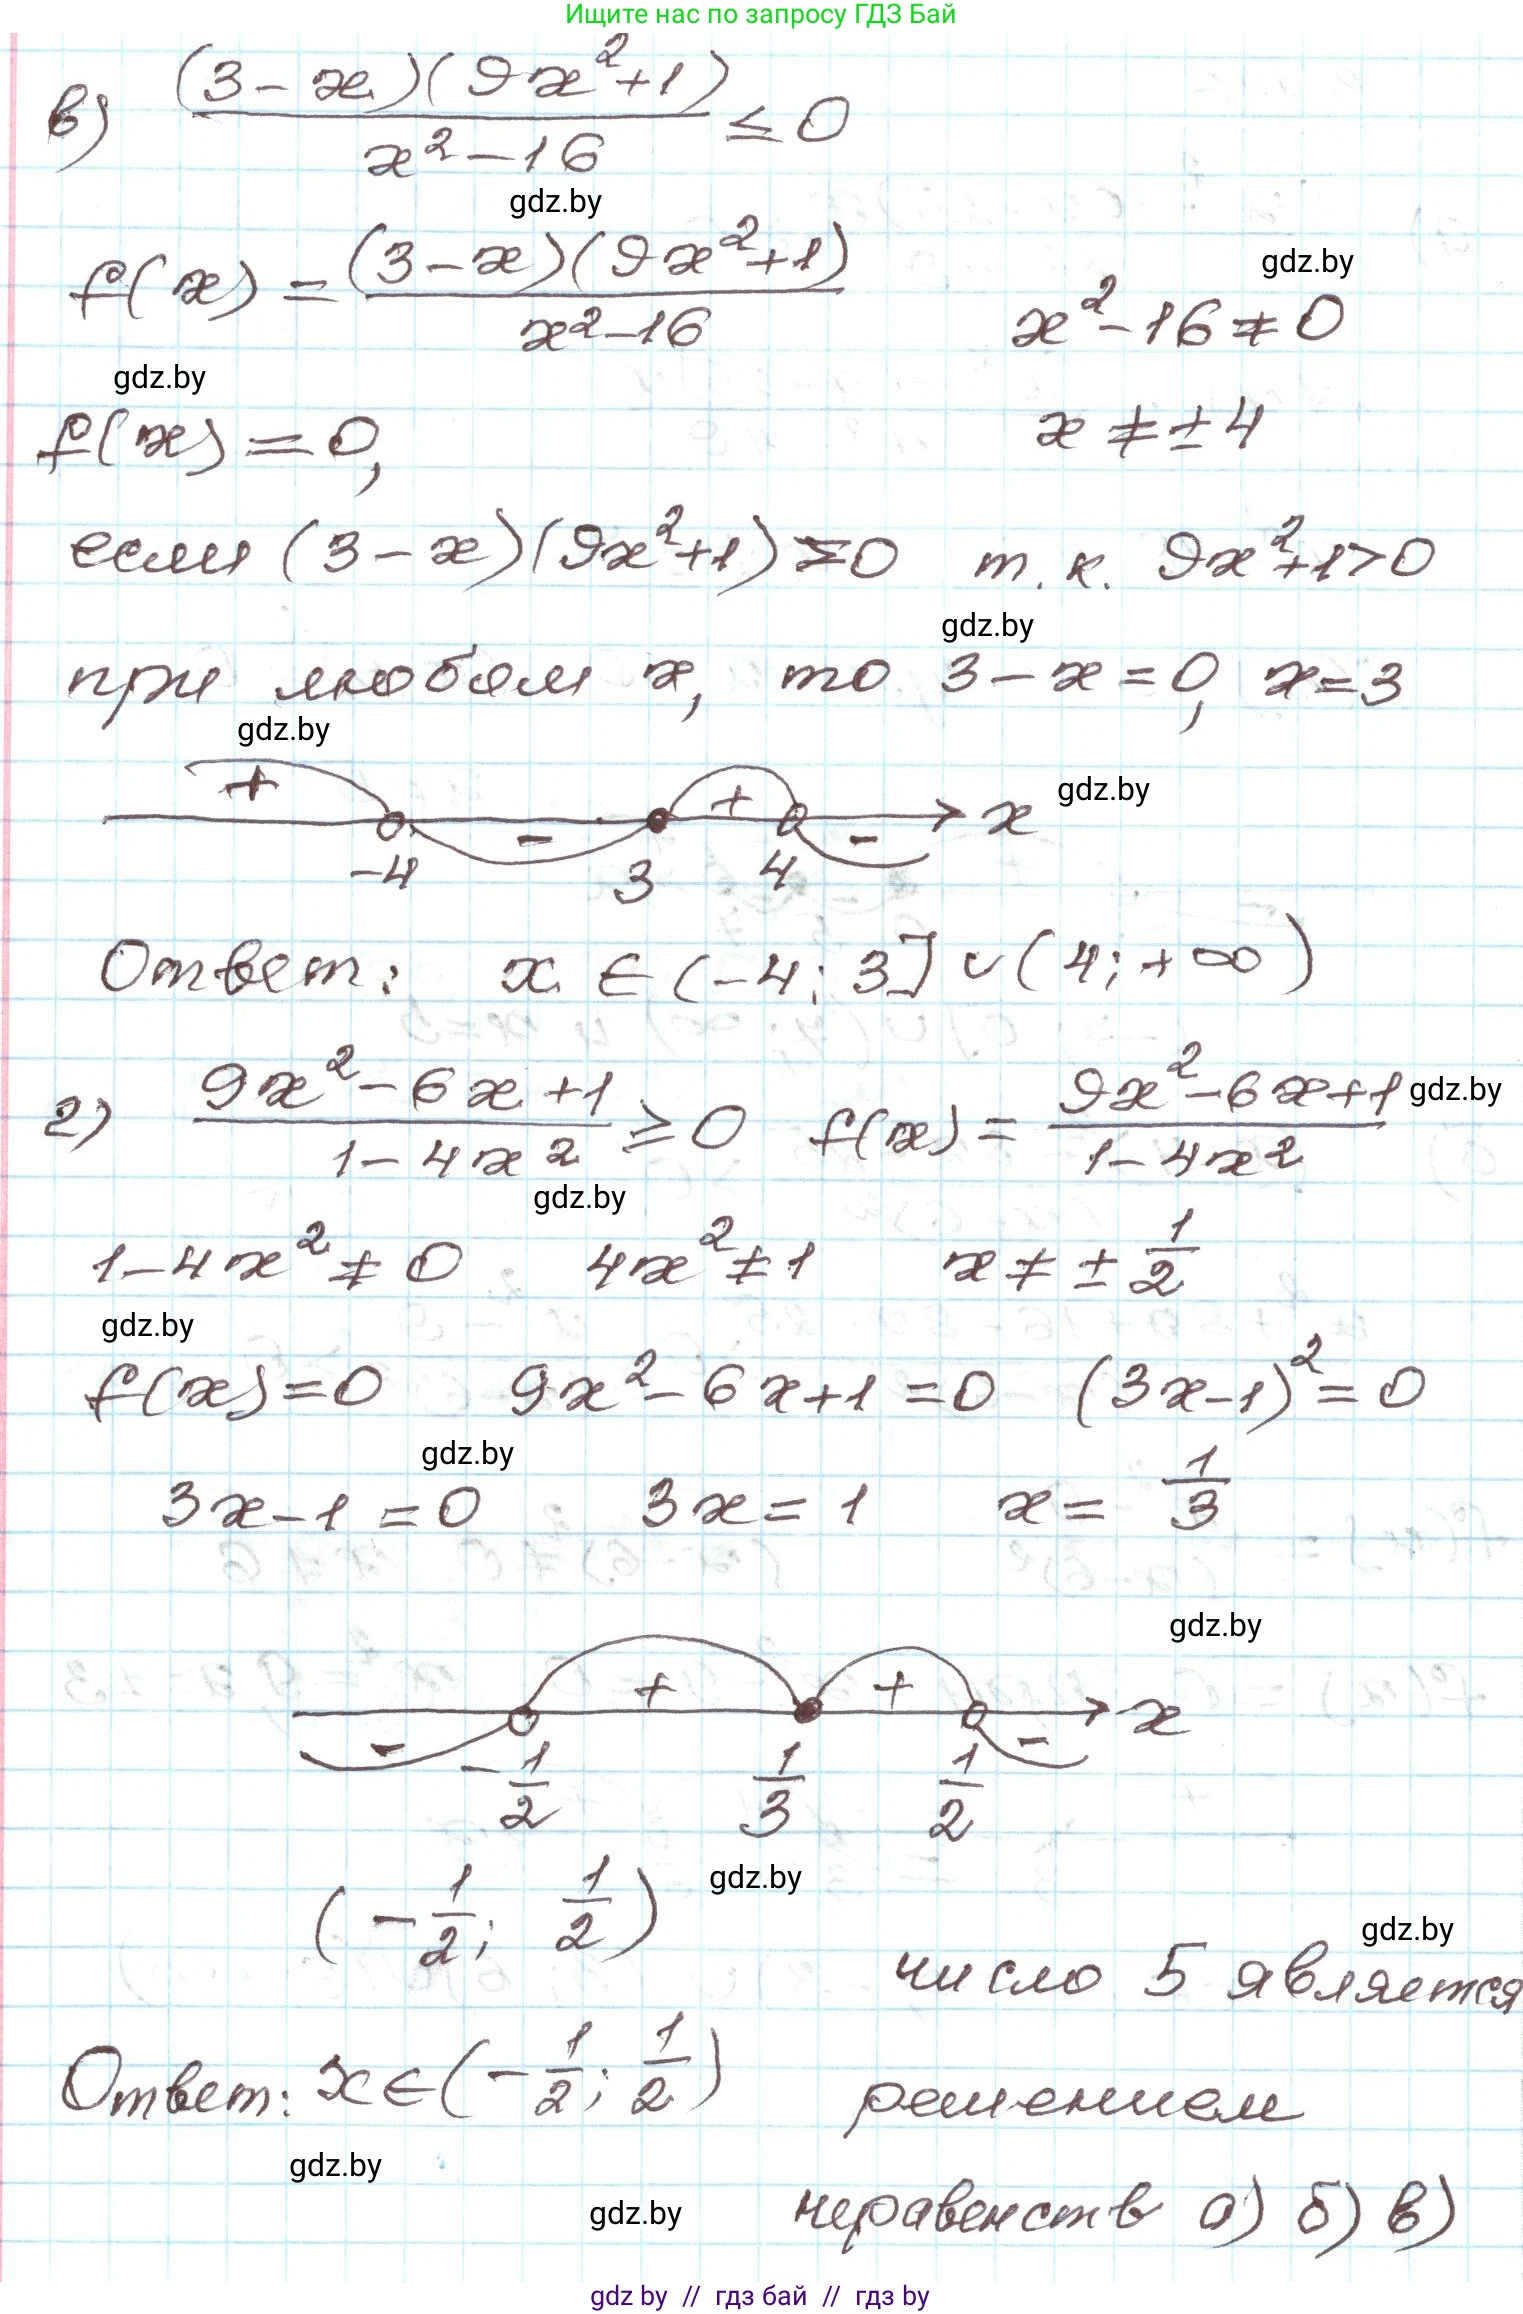 Ищите нас по запросу ГДЗ Бай
в) (3-x)(9x²+1) / x²-16 ≤ 0
gdz.by
f(x) = (3-x)(9x²+1) / x²-16
gdz.by
x²-16≠0
gdz.by
f(x)=0,
x≠±4
если (3-x)(9x²+1)=0 т.к. 9x²+1>0
gdz.by
при любом x, то 3-x=0, x=3
gdz.by
+ - + - x
gdz.by
-4 3 4
Ответ: x∈(-4; 3]∪(4; +∞)
г) 9x²-6x+1 / 1-4x² ≥ 0 f(x) = 9x²-6x+1 / 1-4x²
gdz.by
gdz.by
1-4x²≠0 4x²≠1 x≠±1/2
gdz.by
f(x)=0 9x²-6x+1=0 (3x-1)²=0
gdz.by
3x-1=0 3x=1 x=1/3
gdz.by
- + + - x
-1/2 1/3 1/2
gdz.by
(-1/2; 1/2)
gdz.by
число 5 является
Ответ: x∈(-1/2; 1/2)
решением
gdz.by
gdz.by
неравенств а) б) в)
gdz by // гдз бай // гдз by